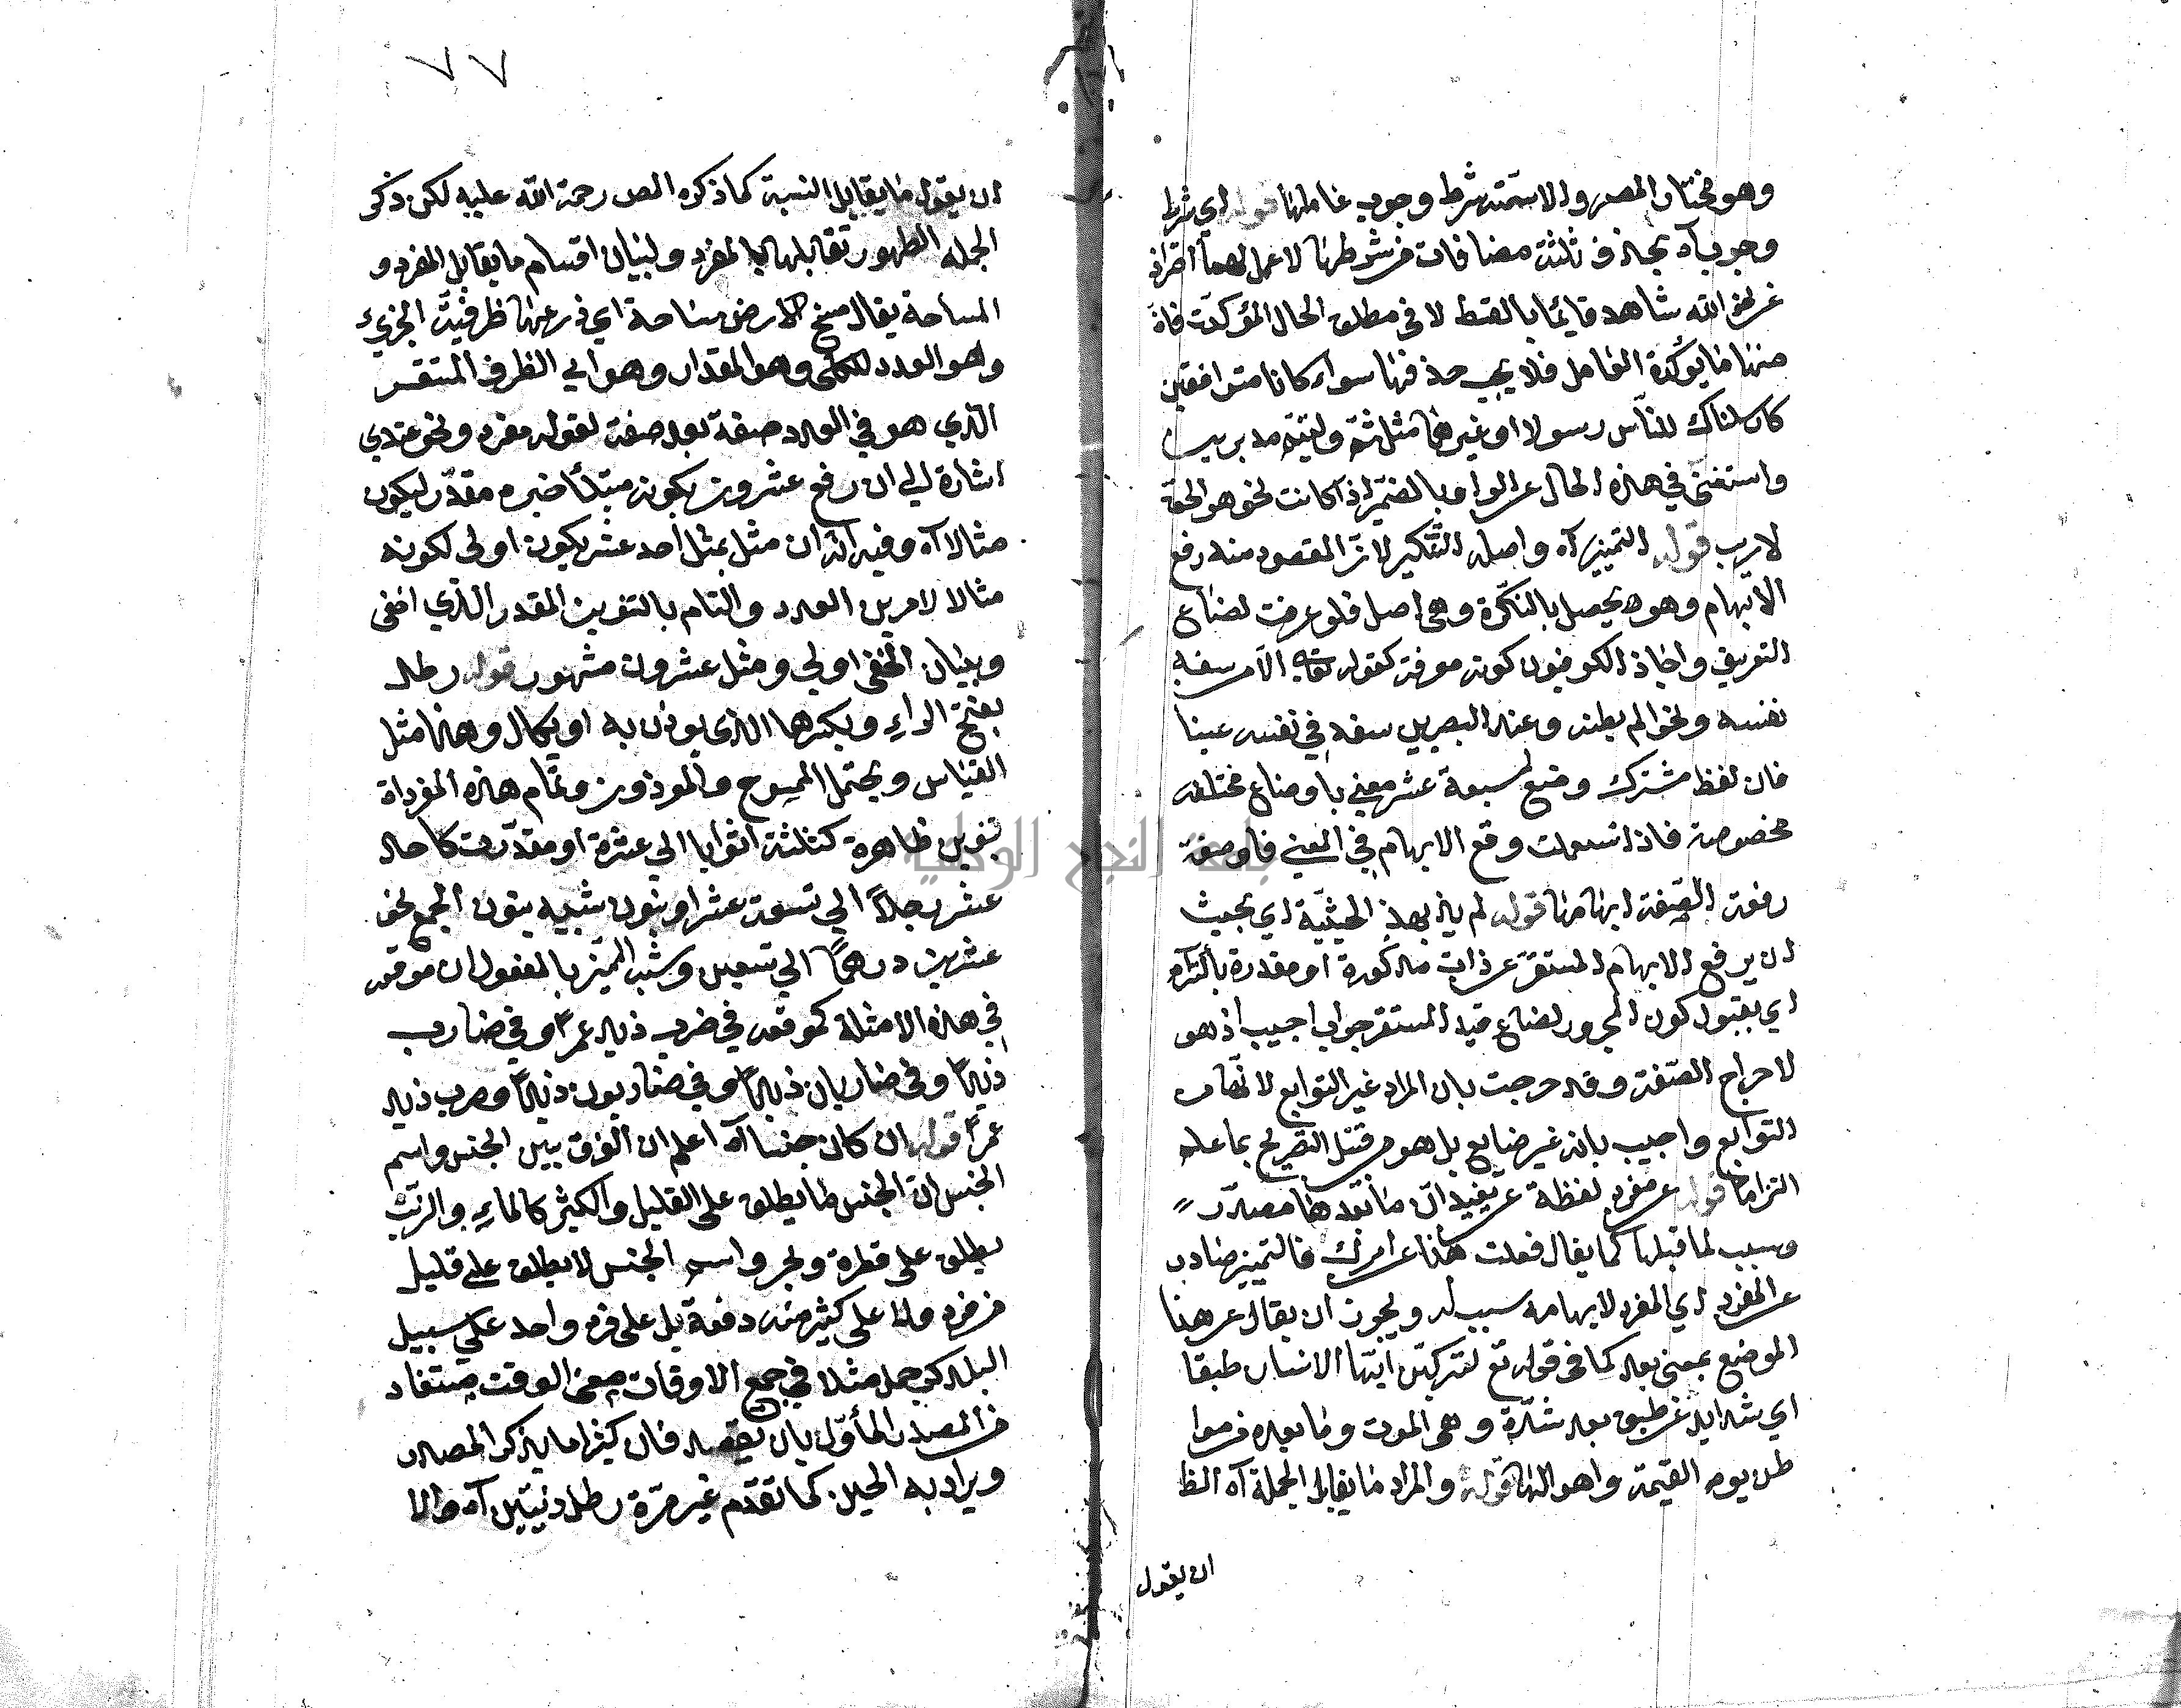 وهو مختار المصر والاستمتة شرط وجوب عاملها قوله اي شرط
وجوب آه بحذف ثلثة مضافات فرشرطها لا عمل لهما
نحو الله شاهد قايما بالقسط لا في مطلق الحال المؤكدة فان
منها ما يؤكدة العامل فلا يجب حذفها سواء كانا متوافقين
كارسلناك للناس رسولا او غيرهما مثل ثم وليتم مدبرين
واستغنى في هذه الحال عن الواو بالضمير اذا كانت نحو هو الحق
لا ريب قوله التمييز آه واصله التنكير لان المقصود منه رفع
الابهام وهو يحصل بالنكرة وهي اصل فلو عرفت لضاع
التعريف واجاز الكوفيون كونه معرفة كقوله تعالى الا من سفه
نفسه ونحو الم بطنه وعند البصريين سفه في نفسه عينا
فان لفظ مشترك وضع لسبعة عشر معنى باوضاع مختلفة
مخصوصة فاذا استعملت وقع الابهام في المعنى فاوصفة
رفعة الصفة ابهامها قوله لم بهذ الحيثية اي بحيث
ان يرفع الابهام المستقر عن ذات مذكورة او مقدرة
اي بقبول كون المجرور لضاع قيد المستقر جواب اجيب اذ هو
لاخراج الصفة وقد خرجت بان المراد غير التوابع لانها من
التوابع واجيب بانه غير ضايع بل هو من قبيل التصريح بما علم
التزاما قوله عن مفرد لفظة عن يفيد ان ما بعدها مصدر
وسبب لما قبلها كما يقال فعلت هذا عن امرك فالتمييز صادر
عن المفرد اي المفرد لابهامه سبب له ويجوز ان يقال عن هنا
الموضع بمعنى بعد كما في قوله تع لتركبن ايها الانسان طبقا
اي شدايد عن طبق بعد شدة وهي الموت وما بعده من موا
طن يوم القيمة واهوالها قوله والمراد ما يقابل الجملة آه الظ
ان يقول
٧٧
ان يقول ما يقابل النسبة كما ذكره المص رحمة الله عليه لكن ذكر
الجملة الظهور تقابلها بالمفرد ولبيان اقسام ما يقابل المفرد و
المساحة يقال مسح الارض مساحة اي ذرعها ظرفية الجزيء
وهو العدد للكلي وهو المقدار وهو اي الظرف المستقر
الذي هو في العدد صفة بعد صفة لقوله مفرد ونحو عندي
اشارة الي ان رفع عشرون بكونه مبتدأ خبره مقدر ليكون
مثالا آه وفيه انه ان مثل بمثل احد عشر يكون اولى لكونه
مثالا لامرين العدد والتام بالتنوين المقدر الذي اخفى
وبيان الخفى اولى ومثل عشرون مشهور قوله رطل
بفتح الراء وبكسرها الذي يوزن به او يكال وهذا مثل
القياس ويحتمل الممسوح والموذون وتمام هذه المفرداة
بتنوين ظاهرة كثلثة اثوابا الي عشرة او مقدرة كاحد
عشر رجلا الي تسعة عشر او بنون شبيه بنون الجمع نحو
عشرين درهما الي تسعين وشبه المميز بالمفعول ان موقعه
في هذه الامثلة كموقعه في ضرب ذيد عمرا وفي ضارب
ذيدا وفي ضاربان ذيدا وفي ضاربون ذيدا وضرب ذيد
عمرا قوله ان كان جنسا آه اعلم ان الفرق بين الجنس واسم
الجنس ان الجنس ما يطلق على القليل والكثير كالماء والزيت
يطلق على قطرة وبحر واسم الجنس لا يطلق على قليل
من فرد ولا على كثير منه دفعة بل على فرد واحد على سبيل
البدل كرجل مثلا في جمع الاوقات معنى الوقت مستفاد
من المصدر المأول بان يقصد فان كثيرا ما يذكر المصدر
ويراد به الحين كما تقدم غير مرة رطل ذيتين آه مثالا
جامعة النجاح الوطنية